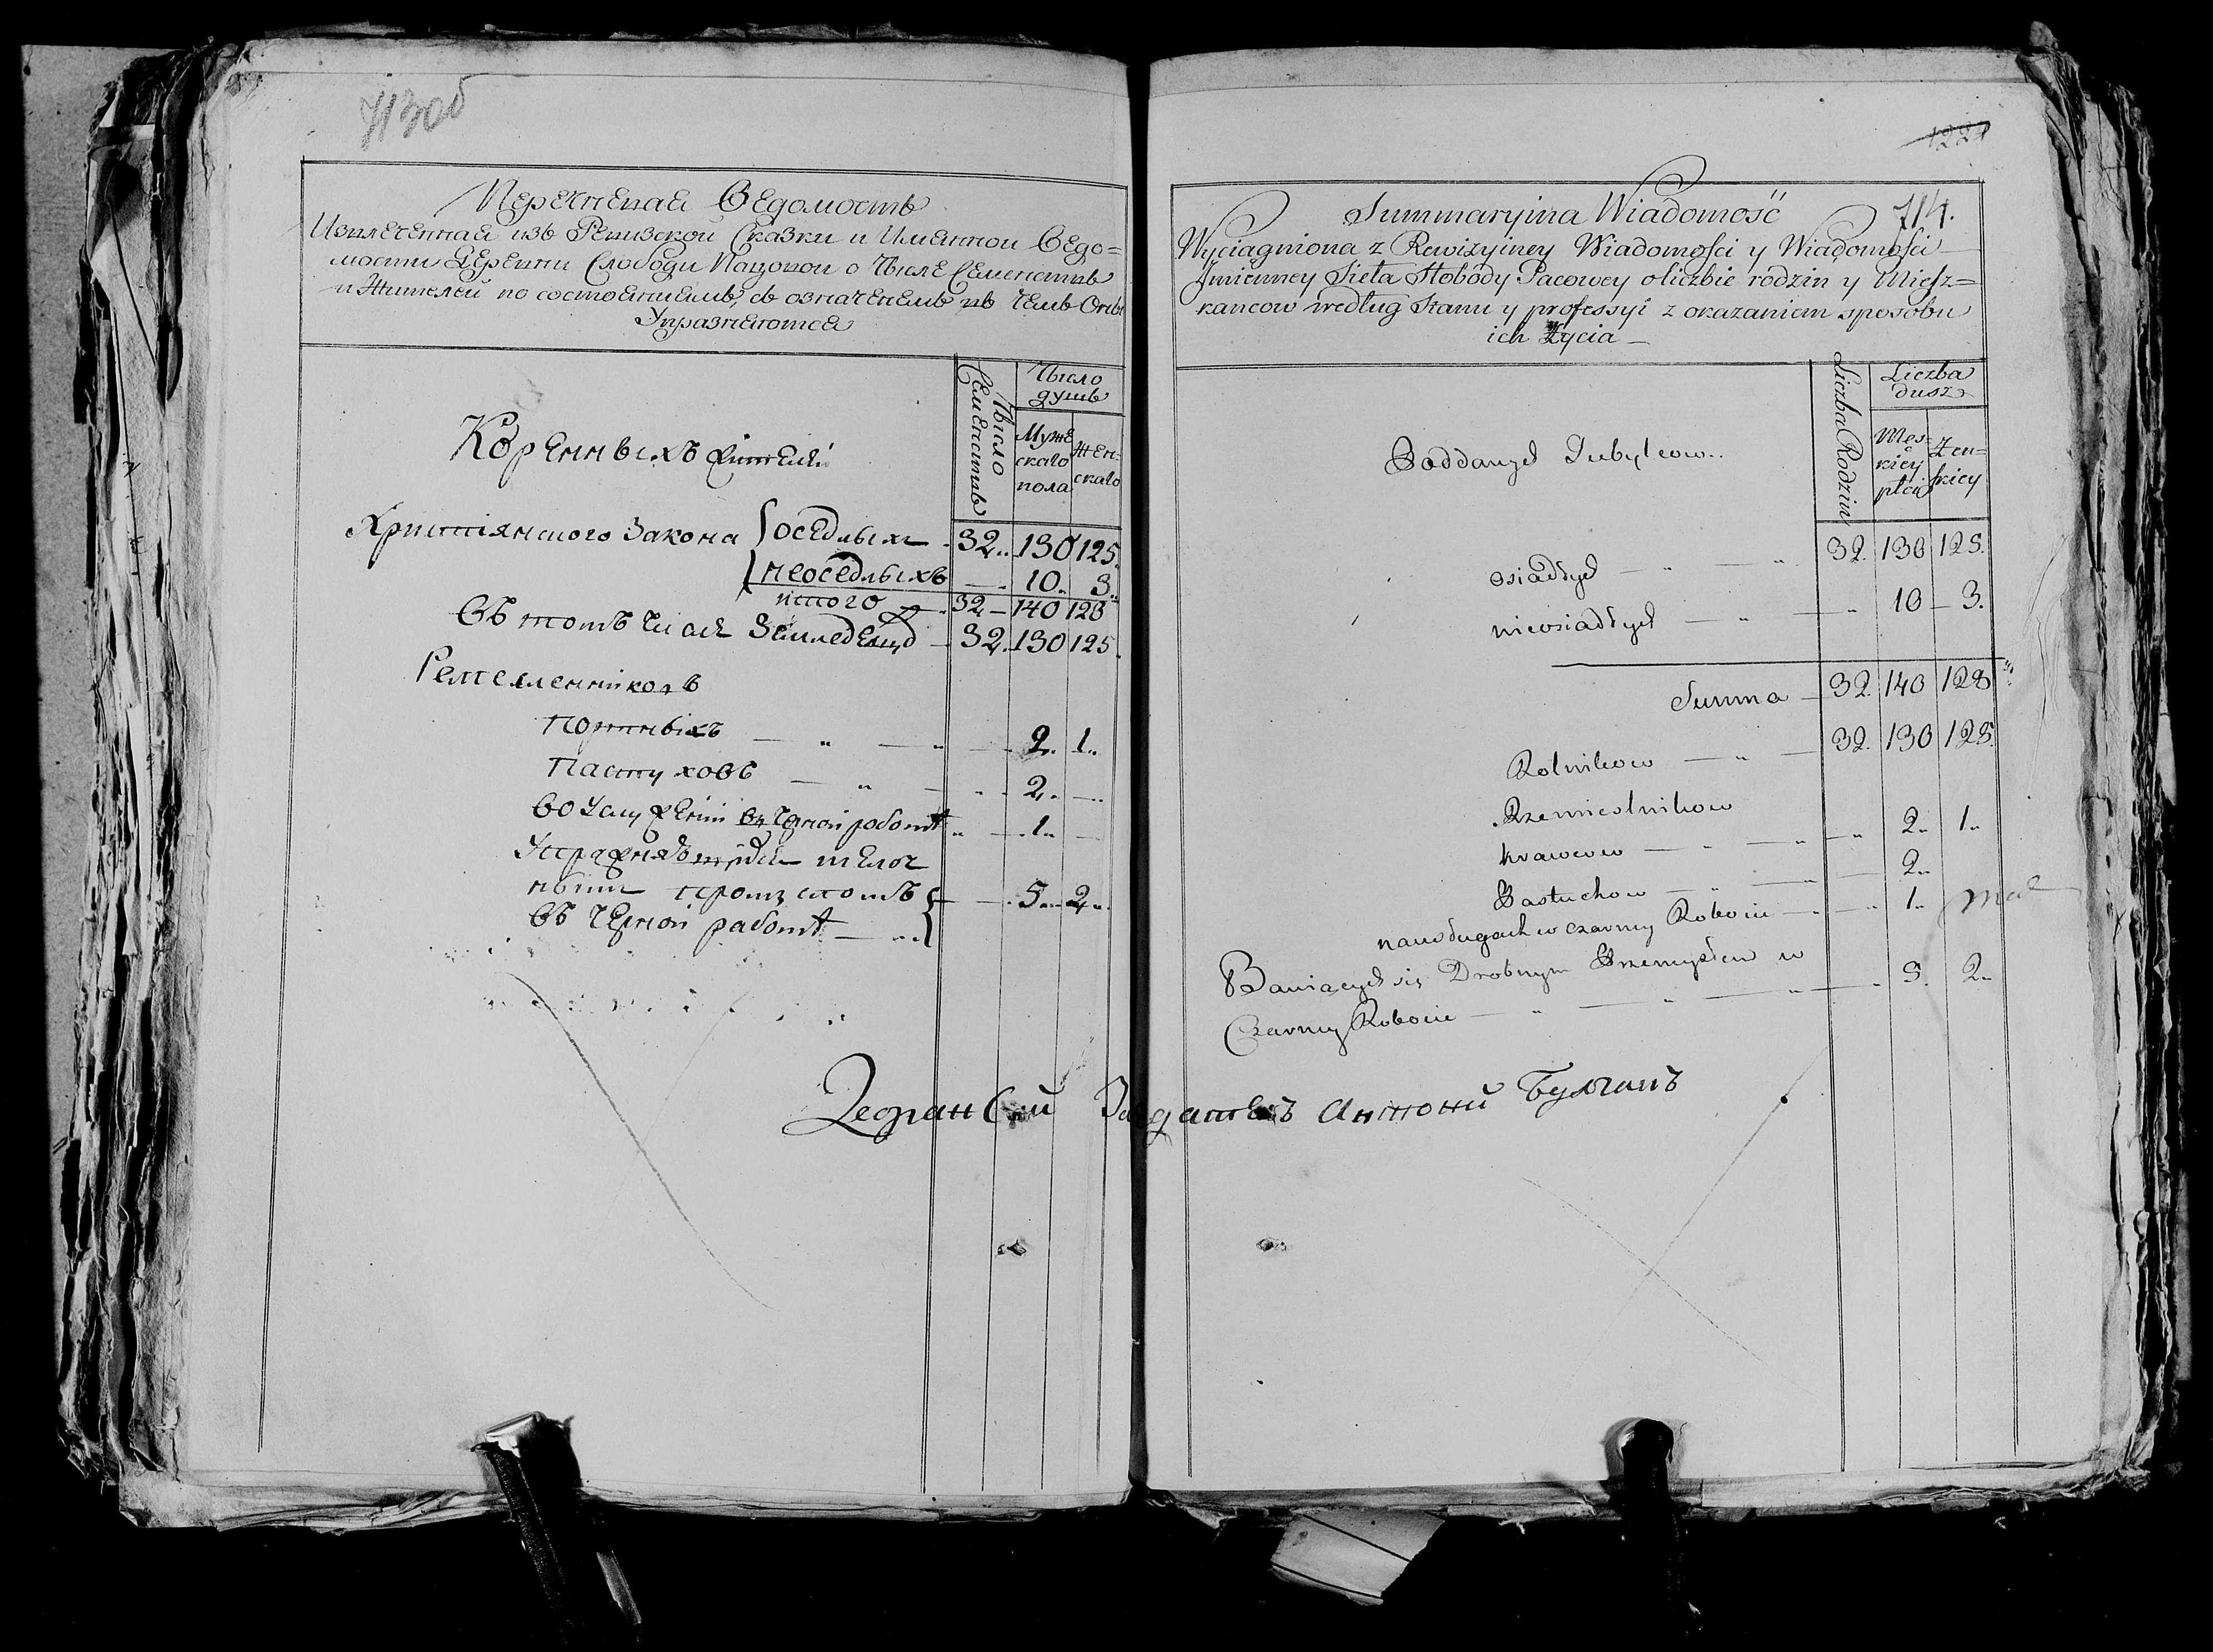 713 об
Перечневая Ведомость
Извлеченная изъ Ревизской Сказки и Именнои Ведо=
мости Деревни Слободы Пацовои о Числе Семействъ
и Жителей по состоениемъ, съ означениемъ въ чемъ Оные
Упражнеютсе
Число Семействъ
Число душъ
Мужескаго пола
Женскаго
Коренныхъ жителей
Христіянского Закона оседлыхъ 32 130 125
неоседлыхъ — 10 3
итого 32 140 128
Въ томъ числе Земледелцо 32 130 125
Ремесленниковъ
Портныхъ — 2 1
Пастуховъ — 2 —
Во Услужении въ Чернои работѣ — 1 —
мелоч
нымъ промысломъ — 5 2
Въ черной работѣ —
1221
714.
Summaryina Wiadomość
Wyciągniona z Rewizyiney Wiadomości y Wiadomości
Imienney Sieła Słobody Pacowey o liczbie rodzin y Miesz=
kancow według Stanu y professyi z okazaniem sposobu
ich Życia —
Liczba Rodzin
Liczba dusz
Męskiey płci
Żenskiey
Poddanych Tubylcow
osiadłych — 32 130 125
nieosiadłych — 10 3
Summa — 32 140 128
Rolnikow — 32 130 125
Rzemieslnikow
krawcow — 2 1
Pastuchow — 2
na usługach w czarney Robocie — 1
Bawiących się Drobnym Przemysłem w
Czarney Robocie — 5 2
Антоній Булгакъ